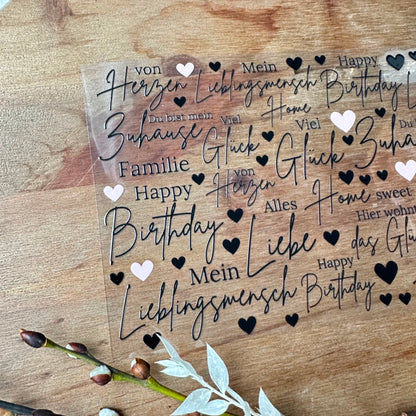 von Mein Happy
Herzen Lieblingsmensch Birthday
Du bist mein Viel Home Viel Du
Zuhause Glück Glück Zuhause
Familie von
Happy Herzen Alles Home sweet
Birthday Liebe Hier wohnt
das Glück
Mein Happy
Lieblingsmensch Birthday